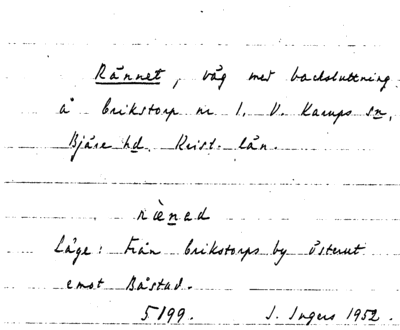 Rännet, väg med backsluttning
å Erikstorp nr 1. V. Karups sn,
Bjäre hd. Krist. län.
ræ̀ned
Läge: Från Erikstorps by österut
emot Båstad.
5199. I. Ingers 1952.